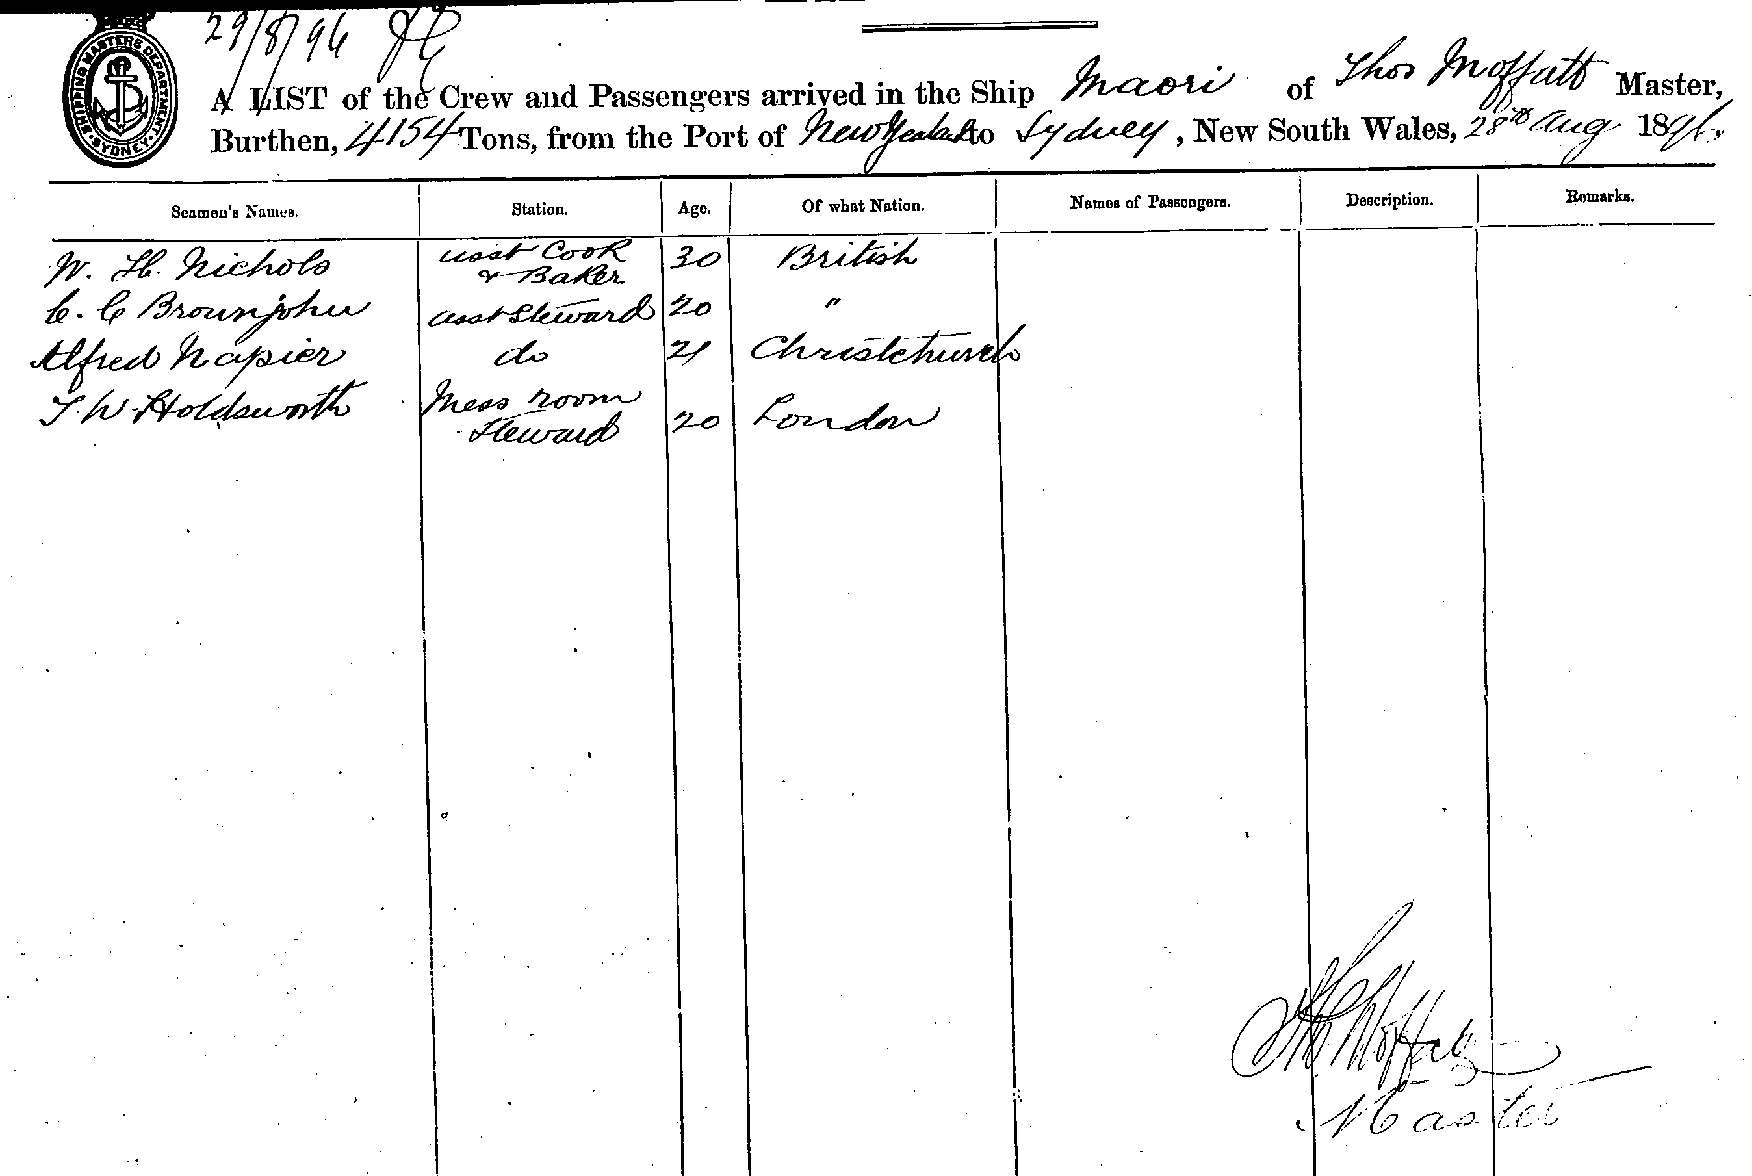 29/8/96
SHIPPING MASTERS DEPARTMENT SYDNEY
A LIST of the Crew and Passengers arrived in the Ship Maori of Thos Moffatt Master,
Burthen, 4154 Tons, from the Port of New Zealand to Sydney, New South Wales, 28th Aug 1896.
Seamen's Names. Station. Age. Of what Nation. Names of Passengers. Description. Remarks.
W. H. Nichols asst Cook & Baker 30 British
C. C Brownjohn asst Steward 20 "
Alfred Napier do 21 Christchurch
T. W. Holdsworth Mess room Steward 20 London
Thos Moffatt
Master